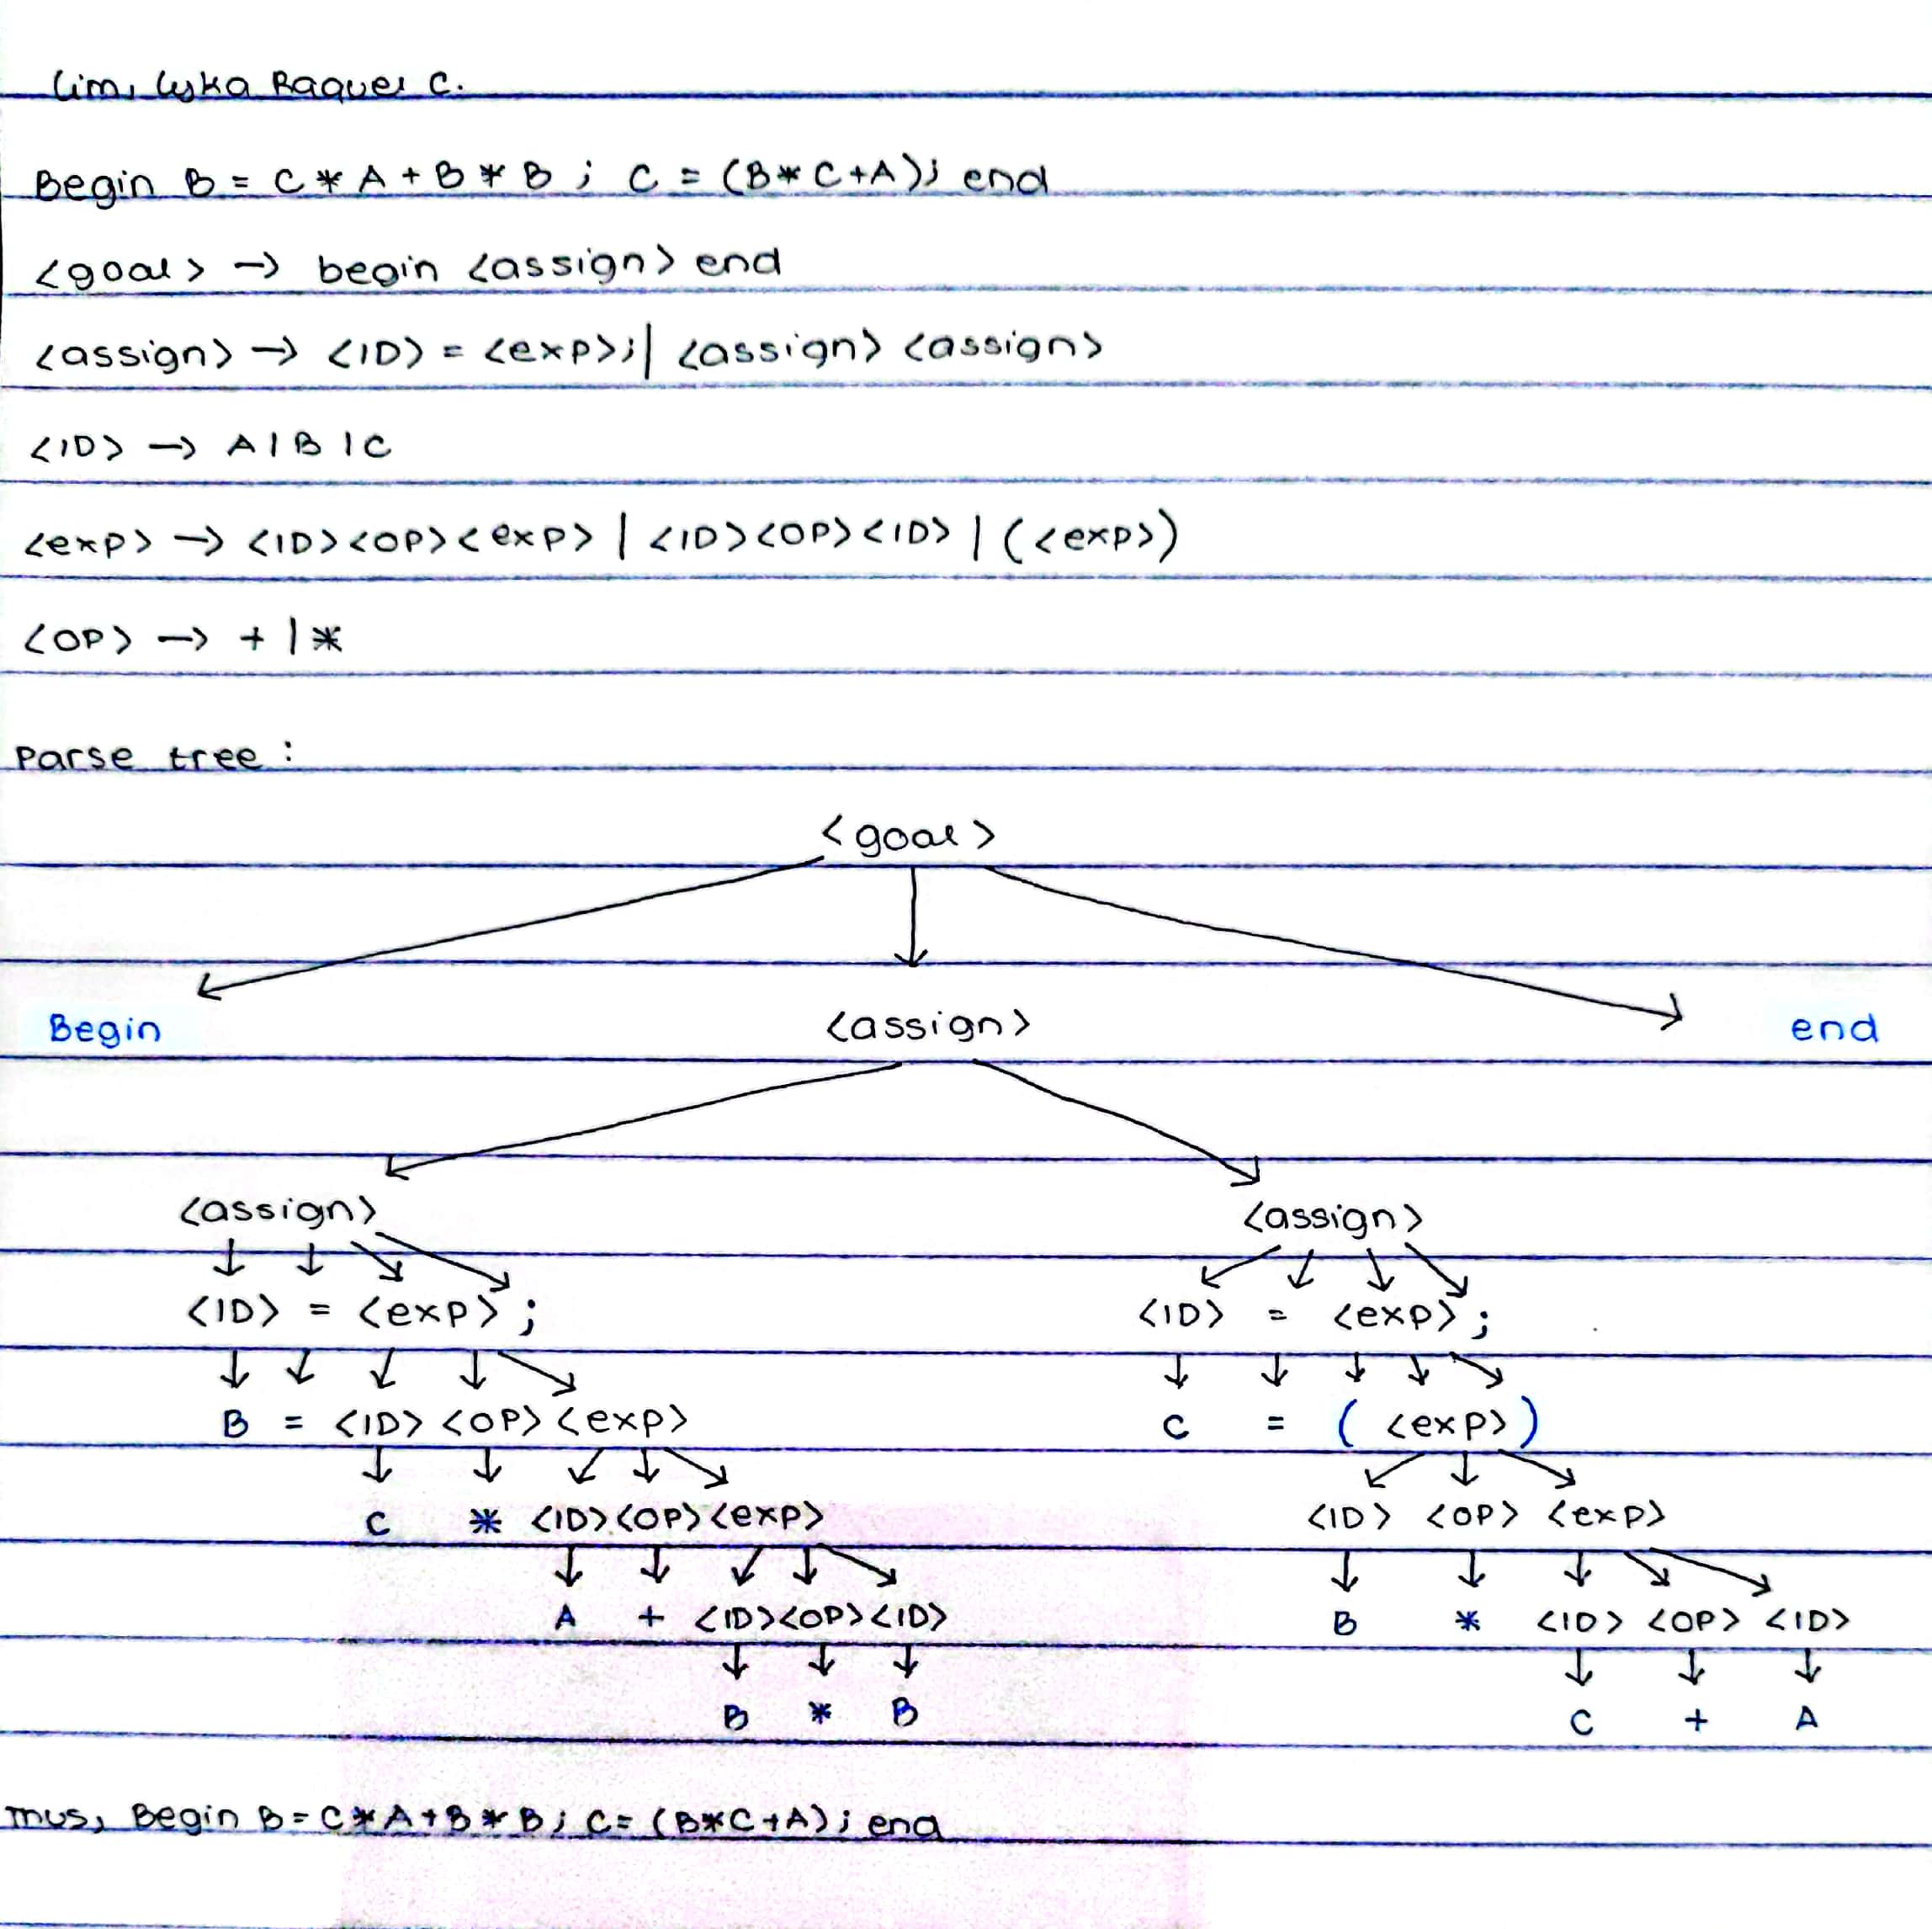 Lim, Lyka Raquel C.
Begin B = C * A + B * B ; C = (B * C + A); end
<goal> → begin <assign> end
<assign> → <ID> = <exp>; | <assign> <assign>
<ID> → A | B | C
<exp> → <ID><OP><exp> | <ID><OP><ID> | (<exp>)
<OP> → + | *
Parse tree :
<goal>
Begin <assign> end
<assign> <assign>
<ID> = <exp> ; <ID> = <exp> ;
B = <ID> <OP> <exp> C = ( <exp> )
C * <ID> <OP> <exp> <ID> <OP> <exp>
A + <ID> <OP> <ID> B * <ID> <OP> <ID>
B * B C + A
Thus, Begin B = C * A + B * B ; C = (B * C + A) ; end